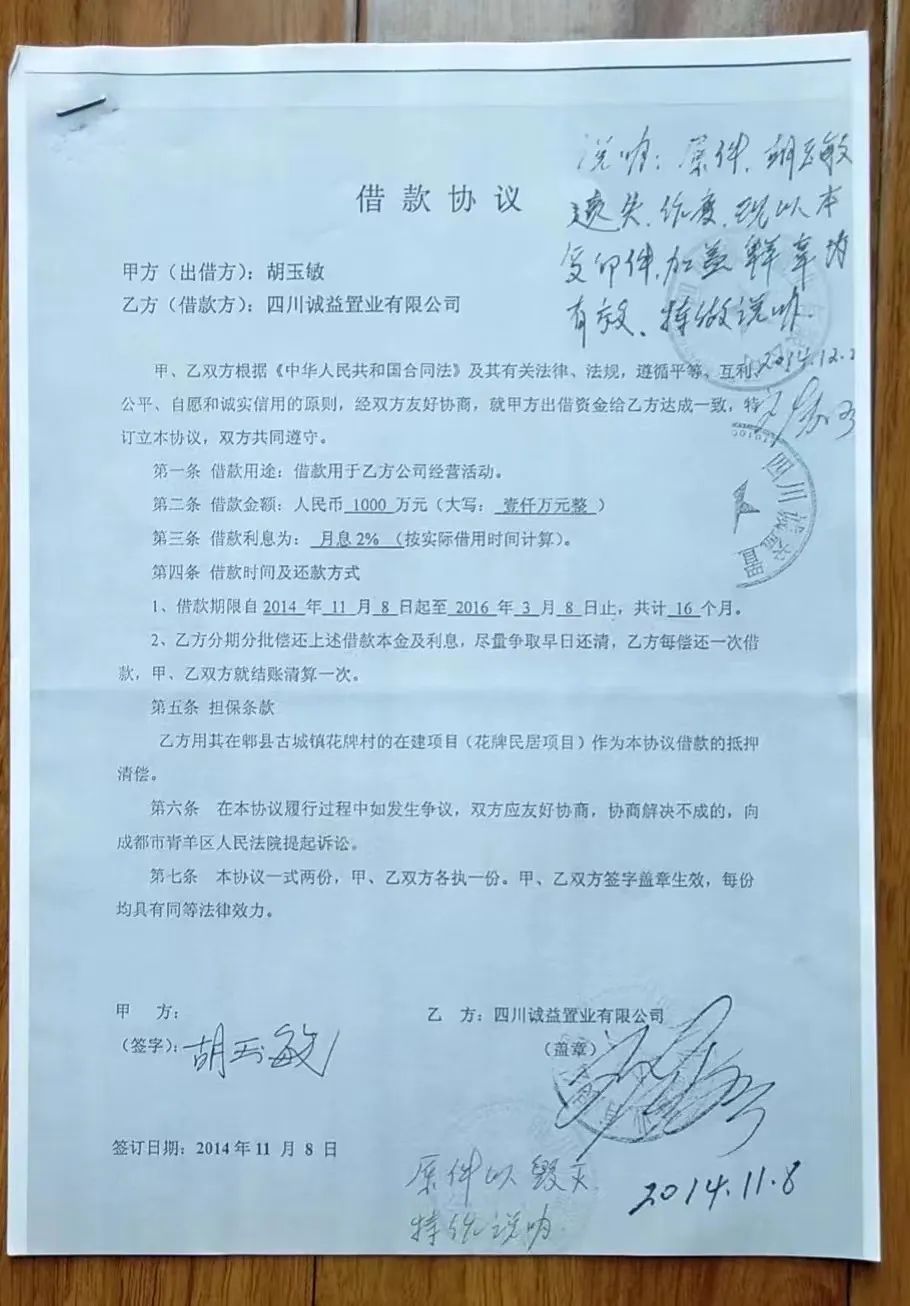 说明：原件，胡玉敏
遗失、作废，现以本
复印件，加盖鲜章为
有效、特做说明．
2014.12.
借款协议
甲方（出借方）：胡玉敏
乙方（借款方）：四川诚益置业有限公司
甲、乙双方根据《中华人民共和国合同法》及其有关法律、法规，遵循平等、互利、
公平、自愿和诚实信用的原则，经双方友好协商，就甲方出借资金给乙方达成一致，特
订立本协议，双方共同遵守。
第一条 借款用途：借款用于乙方公司经营活动。
第二条 借款金额：人民币 1000 万元（大写： 壹仟万元整 ）
第三条 借款利息为： 月息2% （按实际借用时间计算）。
第四条 借款时间及还款方式
1、借款期限自 2014 年 11 月 8 日起至 2016 年 3 月 8 日止，共计 16 个月。
2、乙方分期分批偿还上述借款本金及利息，尽量争取早日还清，乙方每偿还一次借
款，甲、乙双方就结账清算一次。
第五条 担保条款
乙方用其在郫县古城镇花牌村的在建项目（花牌民居项目）作为本协议借款的抵押
清偿。
第六条 在本协议履行过程中如发生争议，双方应友好协商，协商解决不成的，向
成都市青羊区人民法院提起诉讼。
第七条 本协议一式两份，甲、乙双方各执一份。甲、乙双方签字盖章生效，每份
均具有同等法律效力。
四川诚益置
甲 方：
（签字）：胡玉敏
乙 方：四川诚益置业有限公司
（盖章）
签订日期：2014 年 11 月 8 日
2014.11.8
原件以毁灭
特作说明．